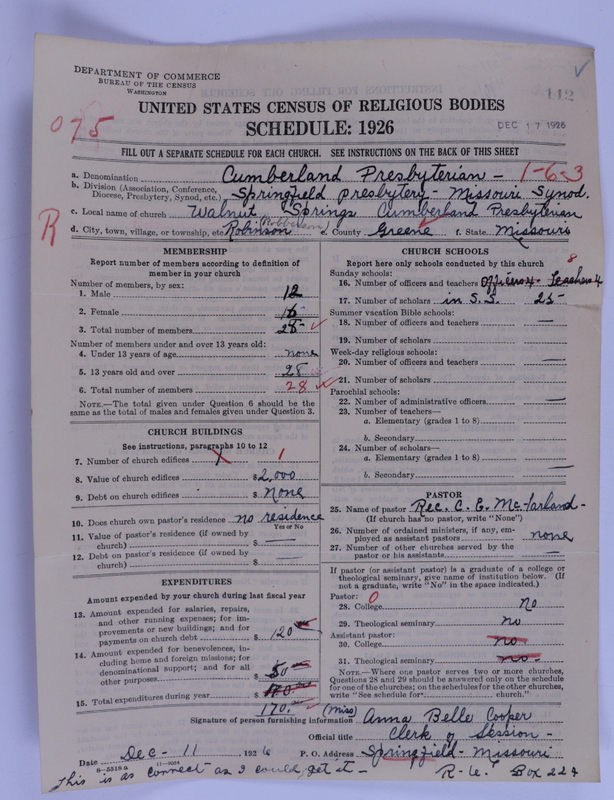 DEPARTMENT OF COMMERCE
BUREAU OF THE CENSUS
WASHINGTON
112
UNITED STATES CENSUS OF RELIGIOUS BODIES
075
SCHEDULE: 1926
DEC 17 1926
FILL OUT A SEPARATE SCHEDULE FOR EACH CHURCH. SEE INSTRUCTIONS ON THE BACK OF THIS SHEET
a. Denomination Cumberland Presbyterian - 1-6-3
b. Division (Association, Conference, Diocese, Presbytery, Synod, etc.) Springfield presbytery - Missouri Synod.
c. Local name of church Walnut Springs Cumberland Presbyterian
R
d. City, town, village, or township, etc. Robinson (Robberson) e. County Greene f. State Missouri
MEMBERSHIP
Report number of members according to definition of
member in your church
Number of members, by sex:
1. Male 12
2. Female 16
3. Total number of members 28
Number of members under and over 13 years old:
4. Under 13 years of age none
5. 13 years old and over 28
6. Total number of members 28
NOTE.—The total given under Question 6 should be the
same as the total of males and females given under Question 3.
CHURCH BUILDINGS
See instructions, paragraphs 10 to 12
7. Number of church edifices 1
8. Value of church edifices $ 2,000
9. Debt on church edifices $ None
10. Does church own pastor's residence no residence
Yes or No
11. Value of pastor's residence (if owned by
church) $ —
12. Debt on pastor's residence (if owned by
church) $
EXPENDITURES
Amount expended by your church during last fiscal year
13. Amount expended for salaries, repairs,
and other running expenses; for im-
provements or new buildings; and for
payments on church debt $ 120
14. Amount expended for benevolences, in-
cluding home and foreign missions; for
denominational support; and for all
other purposes $ 50
15. Total expenditures during year $ 170.00
170.
CHURCH SCHOOLS
Report here only schools conducted by this church
Sunday schools: 8
16. Number of officers and teachers officers 4 Teachers 4
17. Number of scholars in S.S. 25
Summer vacation Bible schools:
18. Number of officers and teachers —
19. Number of scholars
Week-day religious schools:
20. Number of officers and teachers —
21. Number of scholars
Parochial schools:
22. Number of administrative officers —
23. Number of teachers—
a. Elementary (grades 1 to 8)
b. Secondary
24. Number of scholars—
a. Elementary (grades 1 to 8)
b. Secondary —
PASTOR
25. Name of pastor Rec. C. E. McFarland -
(If church has no pastor, write "None")
26. Number of ordained ministers, if any, em-
ployed as assistant pastors none
27. Number of other churches served by the
pastor or his assistants —
If pastor (or assistant pastor) is a graduate of a college or
theological seminary, give name of institution below. (If
not a graduate, write "No" in the space indicated.)
Pastor: 0
28. College no
29. Theological seminary no
Assistant pastor:
30. College no
31. Theological seminary no
NOTE.—Where one pastor serves two or more churches,
Questions 28 and 29 should be answered only on the schedule
for one of the churches; on the schedules for the other churches,
write "See schedule for church."
Signature of person furnishing information (Miss) Anna Belle Cooper
Official title Clerk of Session -
Date Dec - 11, 1926 P. O. Address Springfield - Missouri
8—5518a 11—9034
This is as correct as I could get it - Box 224